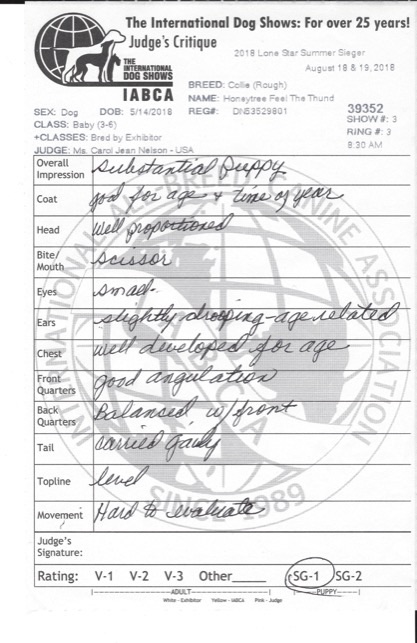 The International Dog Shows: For over 25 years!
Judge's Critique
2018 Lone Star Summer Sieger
August 18 & 19, 2018
THE
INTERNATIONAL
DOG SHOWS
IABCA
BREED: Collie (Rough)
NAME: Honeytree Feel The Thund
SEX: Dog DOB: 5/14/2018 REG#: DN53529801
39352
SHOW #: 3
CLASS: Baby (3-6)
RING #: 3
+CLASSES: Bred by Exhibitor
8:30 AM
JUDGE: Ms. Carol Jean Nelson - USA
Overall Impression Substantial Puppy
Coat good for age & time of year
Head Well proportioned
Bite/Mouth Scissor
Eyes small.
Ears slightly drooping-age related
Chest well developed for age
Front Quarters good angulation
Back Quarters Balanced w/front
Tail carried gaily
Topline level
Movement Hard to evaluate
Judge's Signature:
Rating: V-1 V-2 V-3 Other____ SG-1 SG-2
ADULT PUPPY
White - Exhibitor Yellow - IABCA Pink - Judge
INTERNATIONAL ALL-BREED CANINE ASSOCIATION
IABCA
SINCE 1989